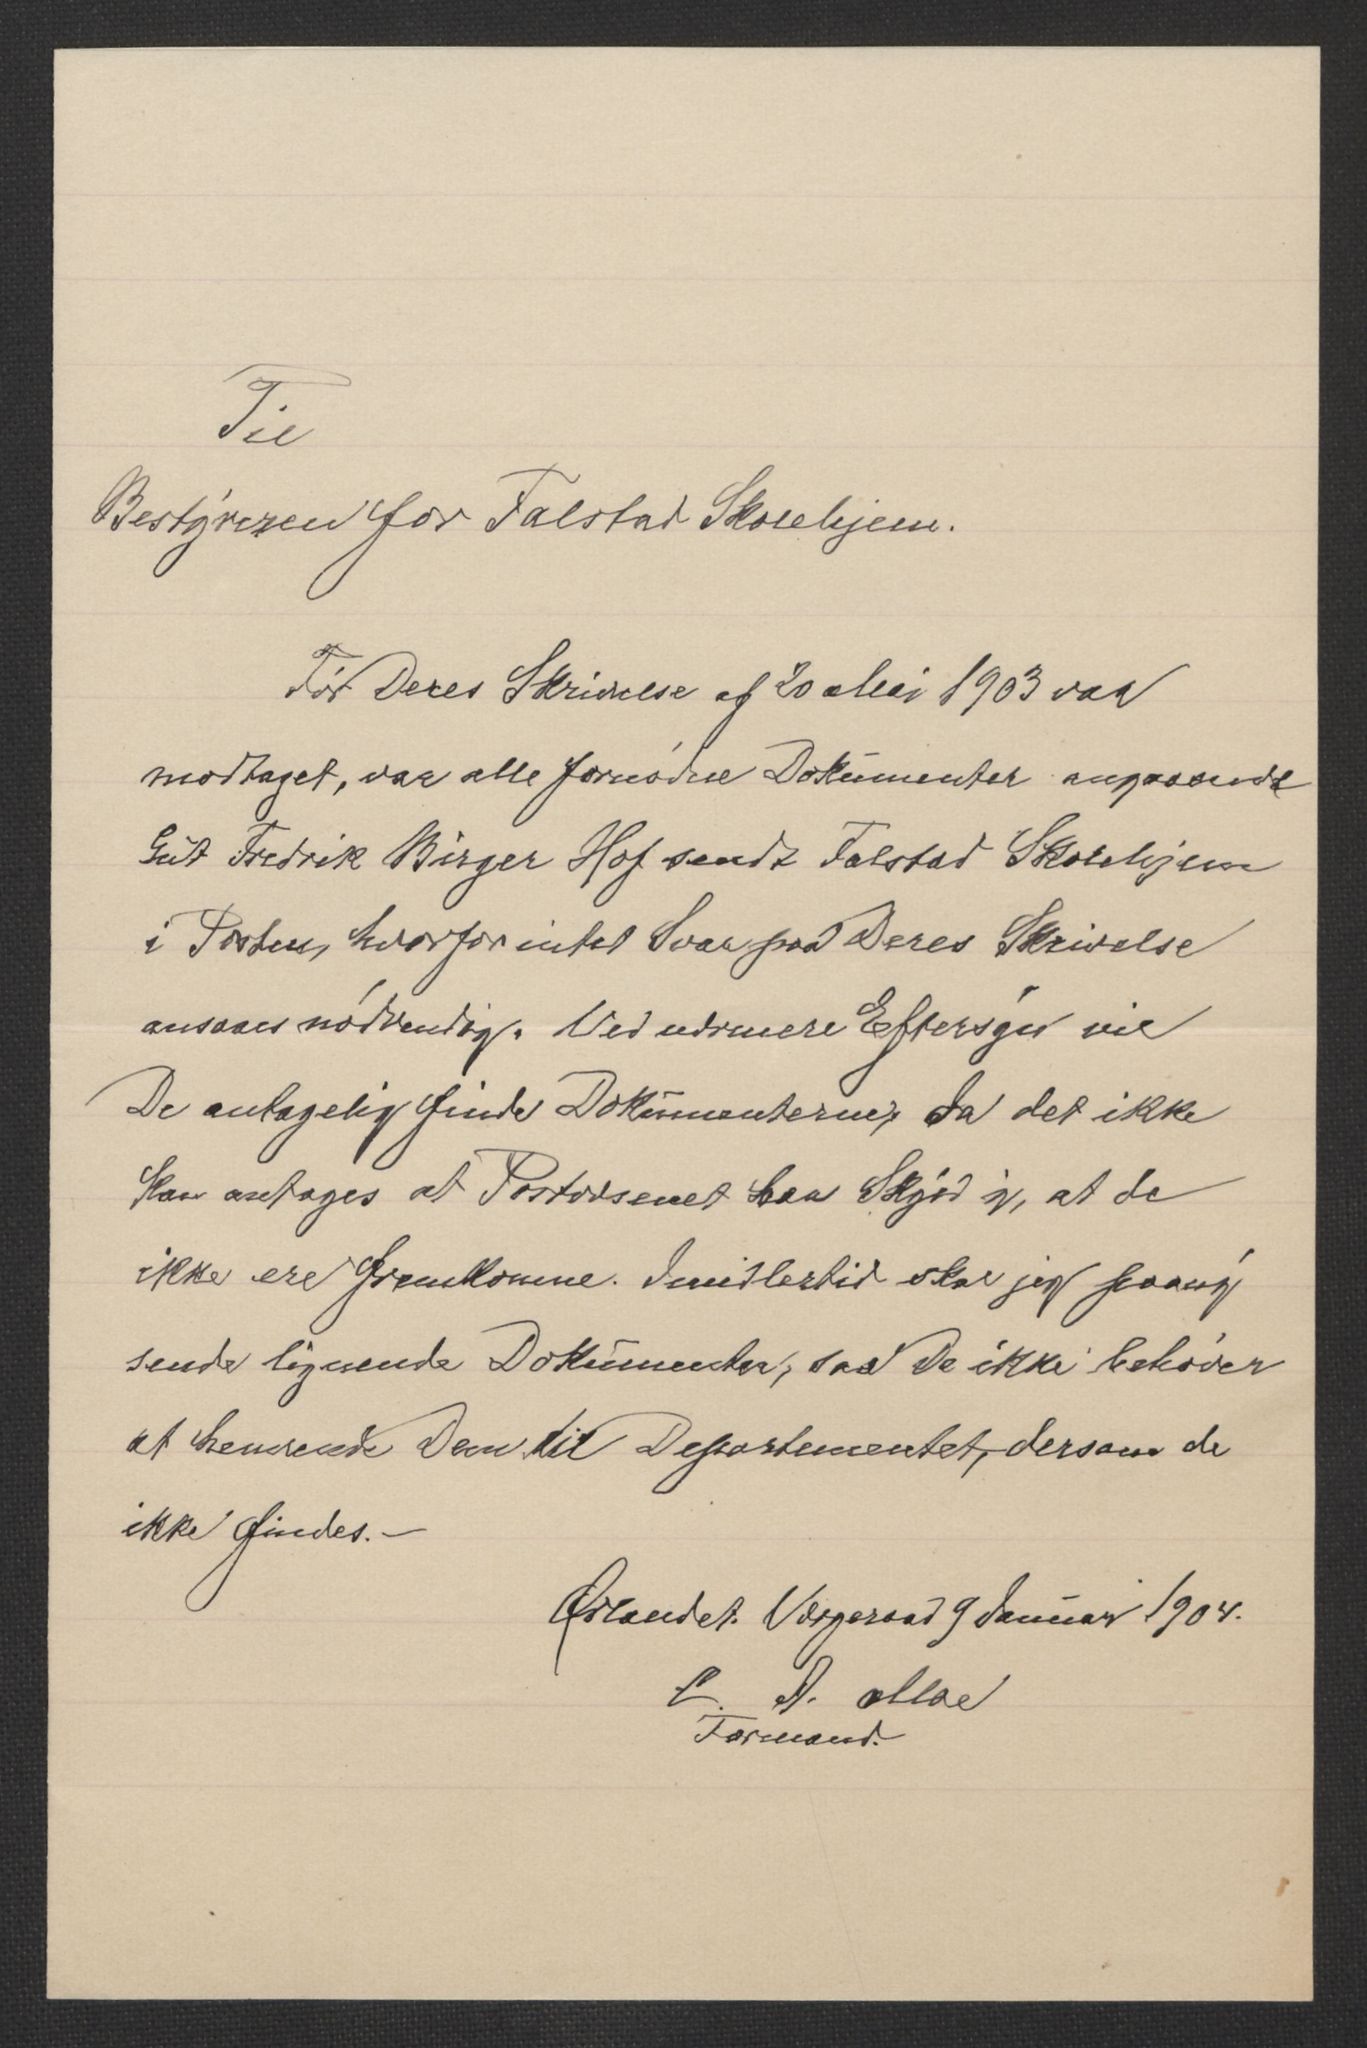 Til
Bestyreren for Falstad Skolehjem.
Før Deres Skrivelse af 20 Mai 1903 var
modtaget, var alle fornødne Dokumenter angaaende
Gut Fredrik Birger Hof sendt Falstad Skolehjem
i Posten, hvorfor intet Svar paa Deres Skrivelse
ansaaes nødvendig. Ved nærmere Eftersyn vil
De antagelig finde Dokumenterne, da det ikke
kan antages at Postvæsenet har Skyld i, at de
ikke ere fremkomne. Imidlertid skal jeg paany
sende lignende Dokumenter, saa De ikke behøver
at henvende Dem til Departementet, dersom de
ikke findes.—
Ørlandet Værgeraad 9 Januar 1904.
L. A. Moe
Formand.